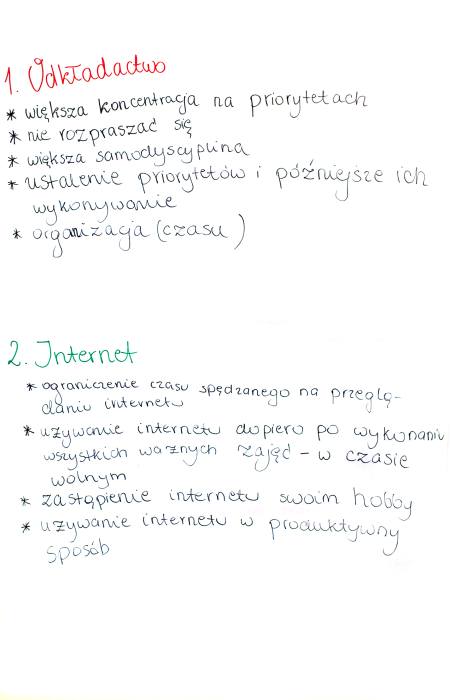 1. Odkładactwo
* większa koncentracja na priorytetach
* nie rozpraszać się
* większa samodyscyplina
* ustalenie priorytetów i późniejsze ich
wykonywanie
* organizacja (czasu)
2. Internet
* ograniczenie czasu spędzanego na przeglą-
daniu internetu
* używanie internetu dopiero po wykonaniu
wszystkich ważnych zajęć - w czasie
wolnym
* zastąpienie internetu swoim hobby
* używanie internetu w produktywny
sposób